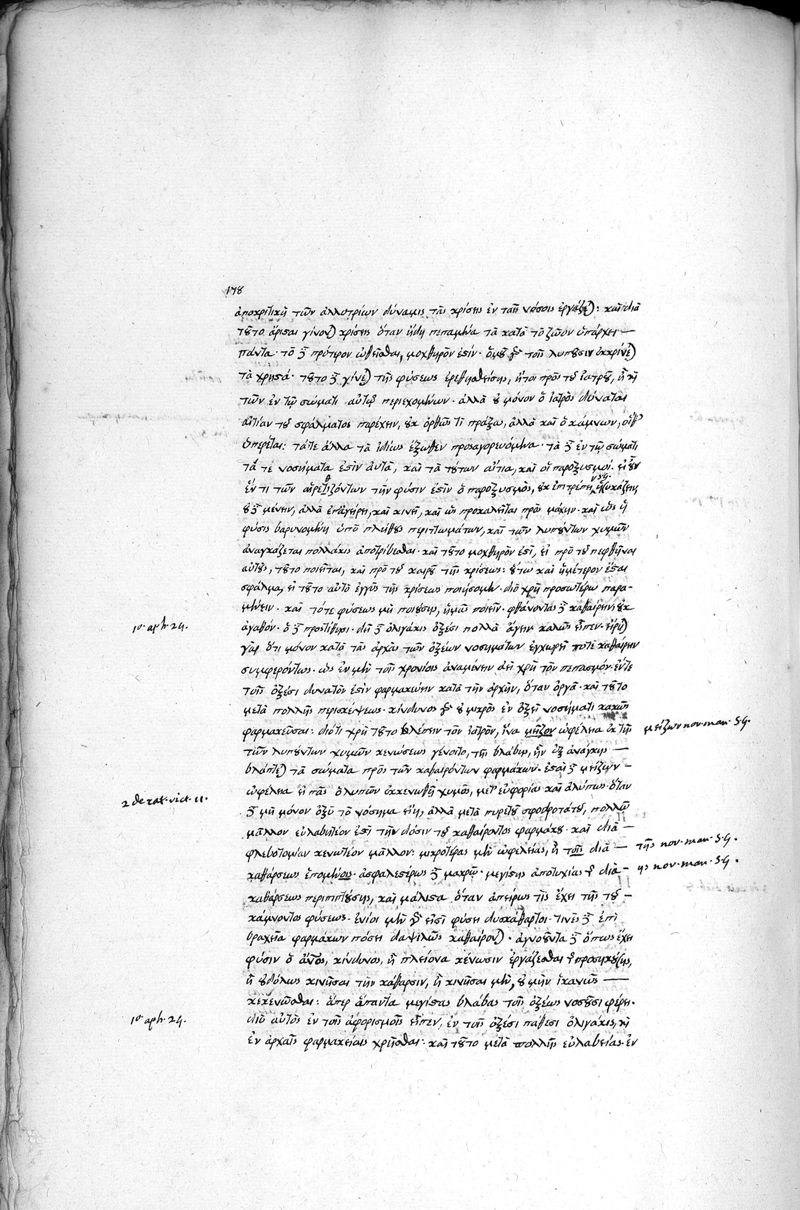 178
ἀποκριτικὴ τῶν ἀλλοτρίων δύναμις τὰς κρίσεις ἐν ταῖς νόσοις ἐργάζε): καὶ διὰ
τȣ̃το ἄρισαι γίνον) κρίσεις ὅταν ἤδη πεπαμμένα τὰ κατὰ τὸ ζῶον ὑπάρχει —
πάντα. τὸ δὲ πρότερον ὠθεῖσθαι, μοχθηρόν ἐσιν. τοῖς λυπȣ͂σιν ἐκκρίνε)
τὰ χρησά. τȣ̃το δὲ γίνε) τῆς φύσεως ἐρεθισθείσης, ἤτοι πρὸς τȣ̃ ἰατρȣ̃, ἢ
τῶν ἐν τῷ σώματι αὐτῷ περιεχομένων. ἀλλὰ ȣ̓ μόνον ὁ ἰατρὸς δύναται
αἰτίαν τȣ̃ σφάλματος παρέχειν, ȣ̓κ ὀρθῶς τι πράξας, ἀλλὰ καὶ ὁ κάμνων, οἵ θ'
ὑπηρέται: τά τε ἄλλα τὰ ἰδίως ἔξωθεν προσαγορευόμενα. τὰ δὲ ἐν τῷ σώματι
τά τε νοσήματα ἐσὶν αὐτὰ, καὶ τὰ τȣ́των αἴτια, καὶ οἱ παροξυσμοί. εἰ ȣ̓͂ν
ἕν τι τῶν ἐρεθιζόντων τὴν φύσιν ἐσὶν ὁ παροξυσμὸς, ȣ̓κ ἐπιτρέπει ἡσυχάζειν,
ȣ̓δὲ μένειν, ἀλλὰ ἐπεγείρει, καὶ κινεῖ, καὶ ὡς προκαλεῖται πρὸς μάχην. καὶ ὡς ἡ
φύσις βαρυνομένη ὑπὸ πλήθȣς περιττωμάτων, καὶ τῶν λυπȣ́ντων χυμῶν
ἀναγκάζεται πολλάκις ἀποτρίβεσθαι. καὶ τȣ̃το μοχθηρὸν ἐσὶ, εἰ πρὸ τȣ̃ πεφθῆναι
αὐτȣ̀ς, τȣ̃το ποιεῖται, καὶ πρὸ τȣ̃ καιρȣ̃ τῆς κρίσεως: ȣ̔́τω καὶ ἡμέτερον ἔσαι
σφάλμα, εἰ τȣ̃το αὐτὸ ἐγγὺς τῆς κρίσεως ποιήσομεν. διὸ χρὴ προσωτέρω παρα-
μένειν. καὶ τότε φύσεως μὴ ποιȣ́σης, ἡμᾶς ποιεῖν. φθάνοντας δὲ καθαίρειν, ȣ̓κ
ἀγαθόν. ὃ δὲ προστίθησι. δεῖ δὲ ὀλιγάκις ὀξέσι πολλὰ ἄγειν καλῶς εἶπεν. εἴρη)
γὰρ ὅτι μόνον κατὰ τὰς ἀρχὰς τῶν ὀξέων νοσημάτων ἐγχωρεῖ ποτε καθαίρειν
συμφερόντως. ὡς ἐν μὲν τοῖς χρονίοις ἀναμένειν ἀεὶ χρὴ τὸν πεπασμόν. ἐν δὲ
τοῖς ὀξέσι δυνατὸν ἐσὶν φαρμακεύειν κατὰ τὴν ἀρχὴν, ὅταν ὀργᾷ. καὶ τȣ̃το
μετὰ πολλῆς περισκέψεως. κίνδυνος γὰρ ȣ̓ μικρὸς ἐν ὀξεῖ νοσήματι κακῶς
φαρμακεῦσαι: διότι χρὴ τȣ̃το βλέπειν τὸν ἰατρὸν, ἵνα μεῖζον ὠφέλεια ἐκ τῆς — μείζων nov. man. s. g.
τῶν λυπȣ́ντων χυμῶν κενώσεως γένοιτο, τῆς βλάβης, ἣν ἐξ ἀνάγκης —
βλάπτε) τὰ σώματα πρὸς τῶν καθαιρόντων φαρμάκων. ἔσαι δὲ μείζων —
ὠφέλεια εἰ πᾶς ὁ λυπῶν ἐκκενωθῇ χυμὸς, μετ' εὐφορίας καὶ ἀλύπως. ὅταν
δὲ μὴ μόνον ὀξὺ τὸ νόσημα εἴη, ἀλλὰ μετὰ πυρετȣ̃ σφοδροτάτȣ, πολλῷ
μᾶλλον εὐλαβητέον ἐσὶ τὴν δόσιν τȣ̃ καθαίροντος φαρμάκȣ. καὶ διὰ —
φλεβοτομίαν κενωτέον μᾶλλον: μικροτέρας μὲν ὠφελείας, ἢ τοῖς διὰ — τῆς nov. man. s. g.
καθάρσεως ἑπομένοις. ἀσφαλεστέρως δὲ μακρῷ. μεγίσης ἀποτυχίας διὰ — ης nov. man. s. g.
καθάρσεως περιπιπτȣ́σης, καὶ μάλισα ὅταν ἀπείρως τὶς ἔχει τῆς τȣ̃ —
κάμνοντος φύσεως. ἔνιοι μὲν γὰρ εἰσὶ φύσει δυσκάθαρτοι. τινὲς δὲ ἐπὶ
βραχεῖα φαρμάκων πόσει δαψιλῶς καθαίρον). ἀγνοȣ͂ντα δὲ ὅπως ἔχει
φύσιν ὁ ἄνος, κίνδυνος, ἢ πλείονα κένωσιν ἐργάζεσθαι τῆς προσηκȣ́σης,
ἢ ȣ̓δόλως κινῆσαι τὴν κάθαρσιν, ἢ κινῆσαι μὲν, ȣ̓ μὴν ἱκανῶς —
κεκενῶσθαι: ἅπερ ἅπαντα μεγίσας βλάβας τοῖς ὀξέως νοσȣ̃σι φέρει.
διὸ αὐτὸς ἐν τοῖς ἀφορισμοῖς εἶπεν, ἐν τοῖς ὀξέσι πάθεσι ὀλιγάκις, καὶ
ἐν ἀρχαῖς φαρμακείαις χρῆσθαι. καὶ τȣ̃το μετὰ πολλῆς εὐλαβείας. ἐν
10. aph. 24.
2 de rat. vict. 11.
10. aph. 24.